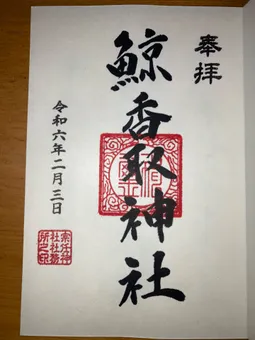 奉拝
鯨香取神社
令和六年二月三日